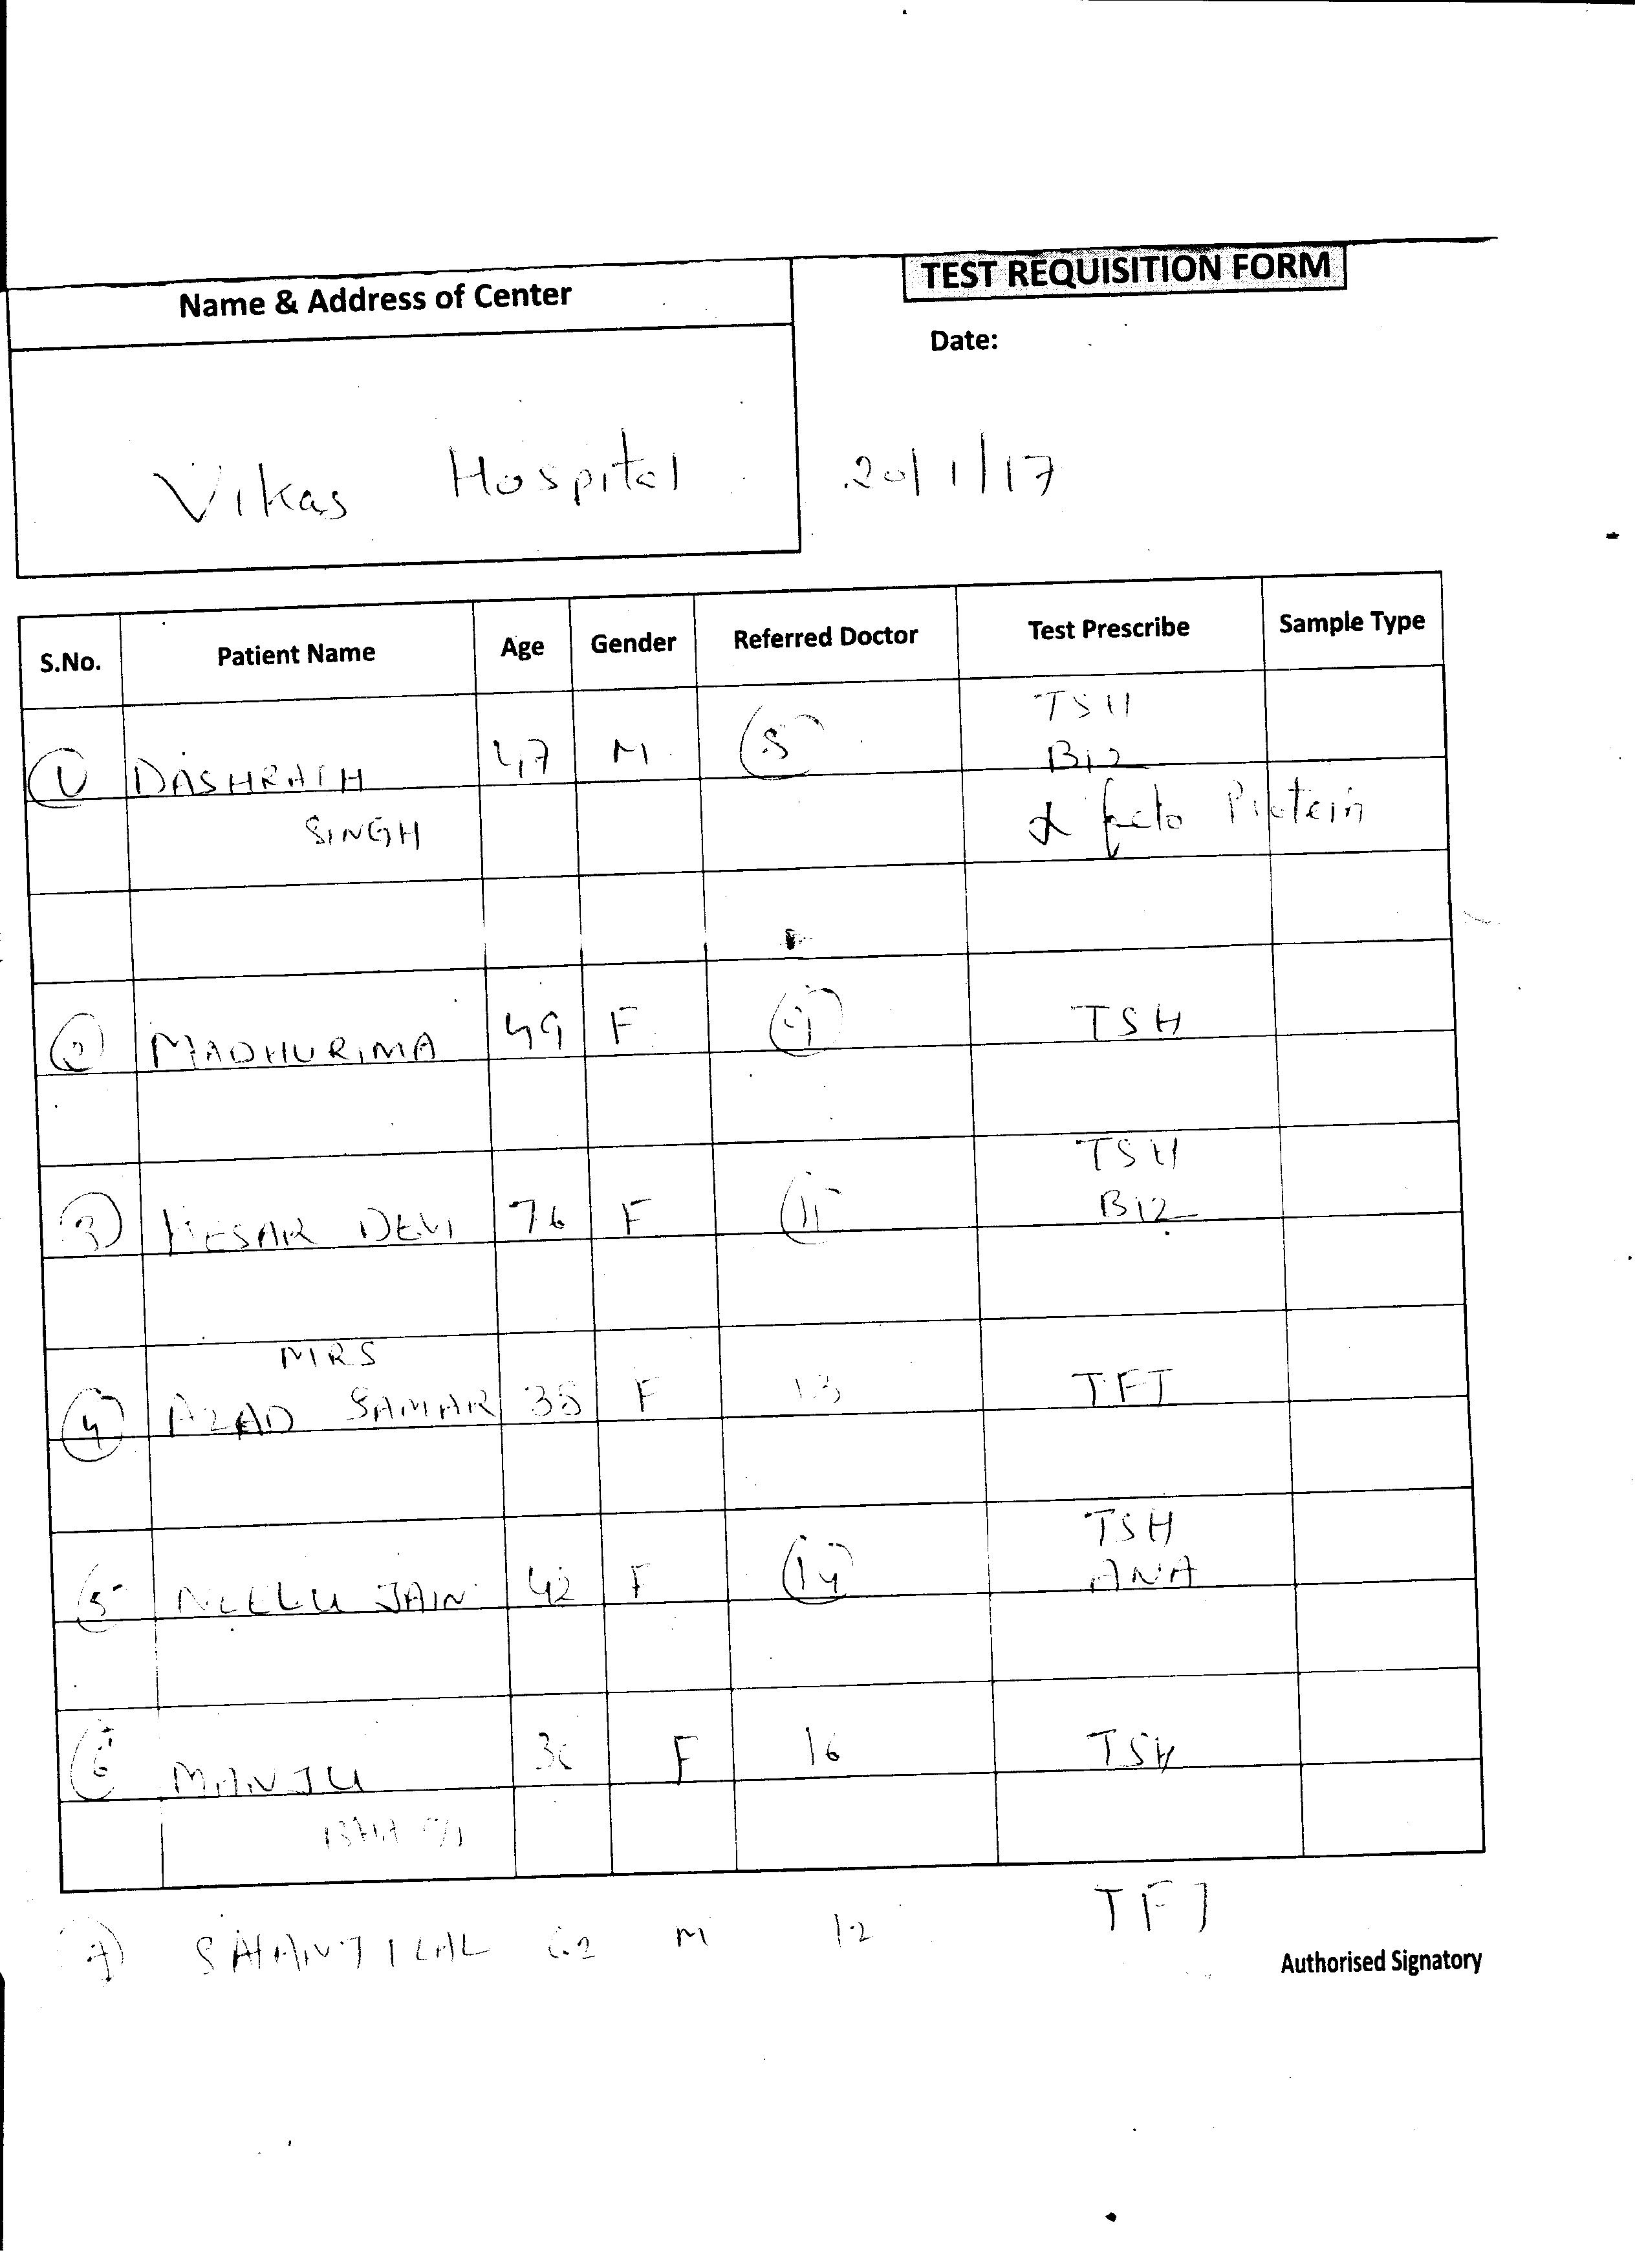 TEST REQUISITION FORM
Name & Address of Center
Date:
Vikas Hospital
20/1/17
S.No. Patient Name Age Gender Referred Doctor Test Prescribe Sample Type
TSH
1 DASHRATH 47 M B12
SINGH α feto Protein
2 MADHURIMA 49 F 9 TSH
TSH
3 KESAR DEVI 76 F 11 B12
MRS
4 AZAD SAMAR 38 F 13 TFT
TSH
5 NEELU JAIN 42 F 14 ANA
6 MANJU F 16 TSH
7) SHANTILAL 62 M 12 TFT
Authorised Signatory